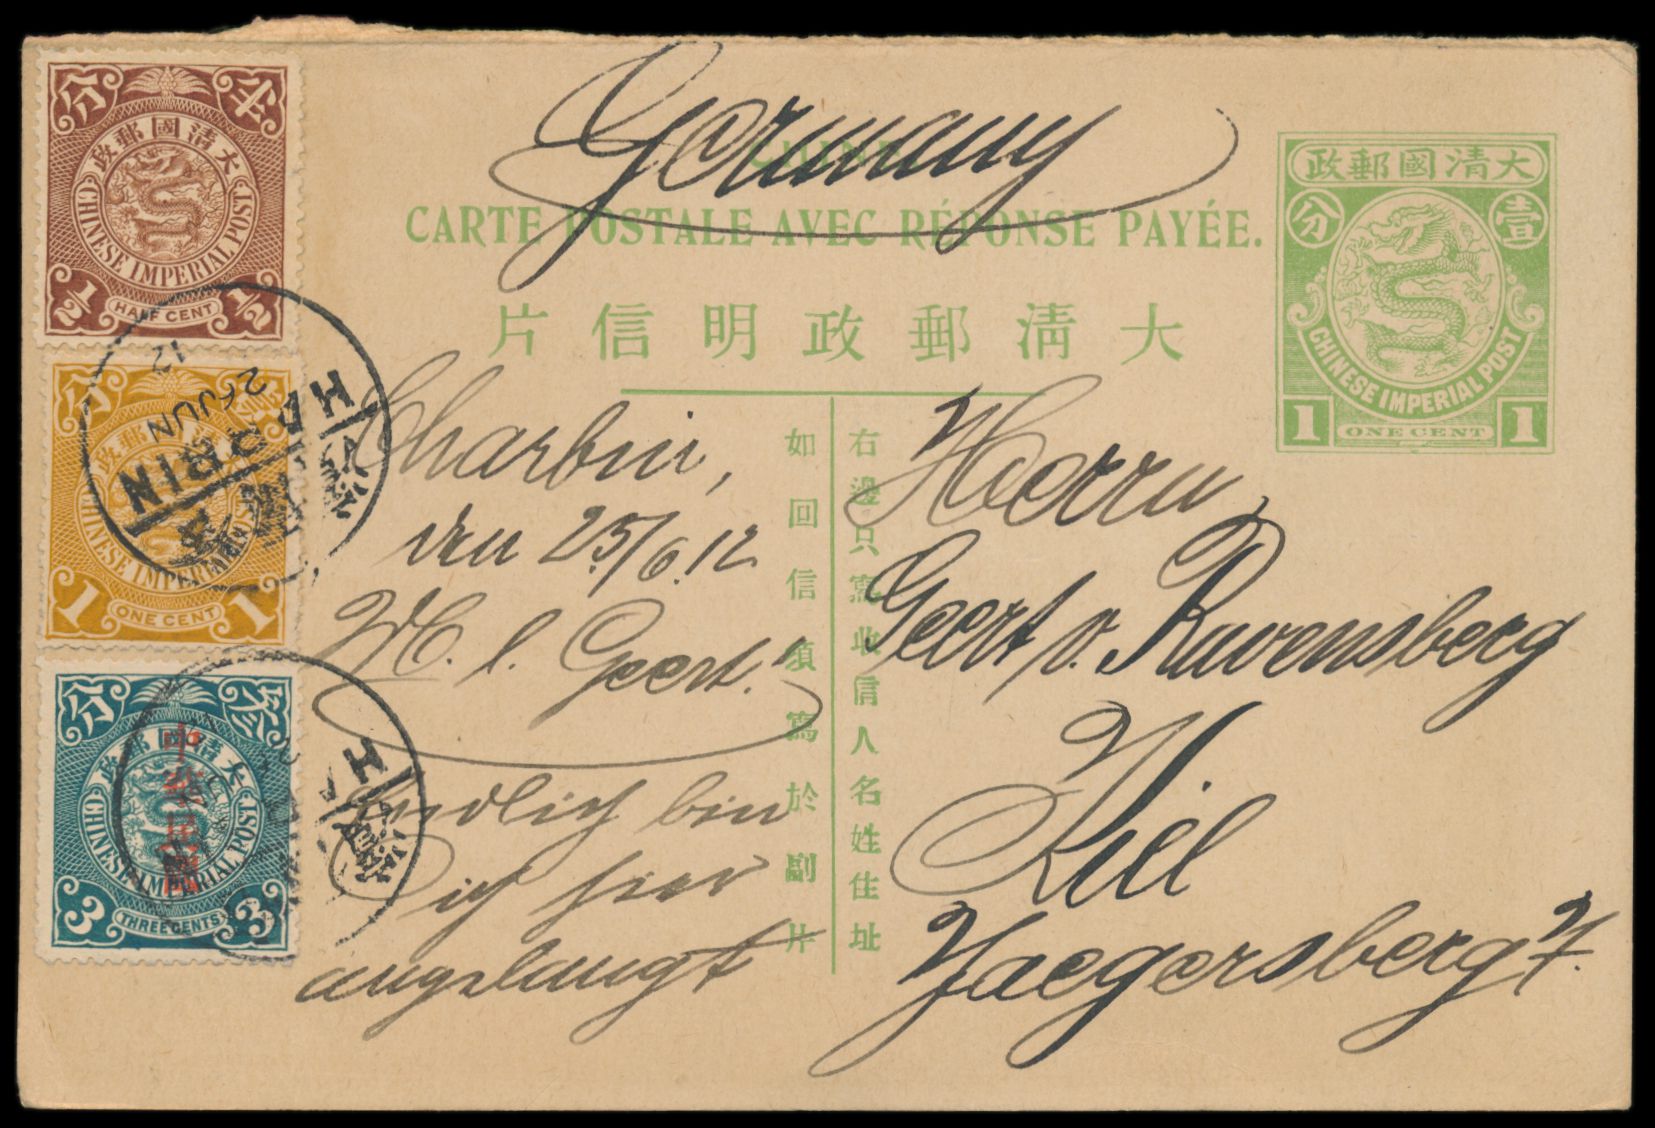 Germany
CHINE
CARTE POSTALE AVEC RÉPONSE PAYÉE.
片信明政郵清大
政郵國清大
分 壹
CHINESE IMPERIAL POST
1 ONE CENT 1
分 半
政郵國清大
CHINESE IMPERIAL POST
½ HALF CENT ½
分 壹
政郵國清大
CHINESE IMPERIAL POST
1 ONE CENT 1
分 叁
政郵國清大
CHINESE IMPERIAL POST
3 THREE CENTS 3
HARBIN
26 JUN
12
右邊只寫收信人名姓住址
如回信須寫於副片
Charbin,
den 25/6.12
M. l. Geert.
Endlich bin
ich hier
angelangt
Herrn
Geert v. Ravensberg
Kiel
Jaegersberg 7.